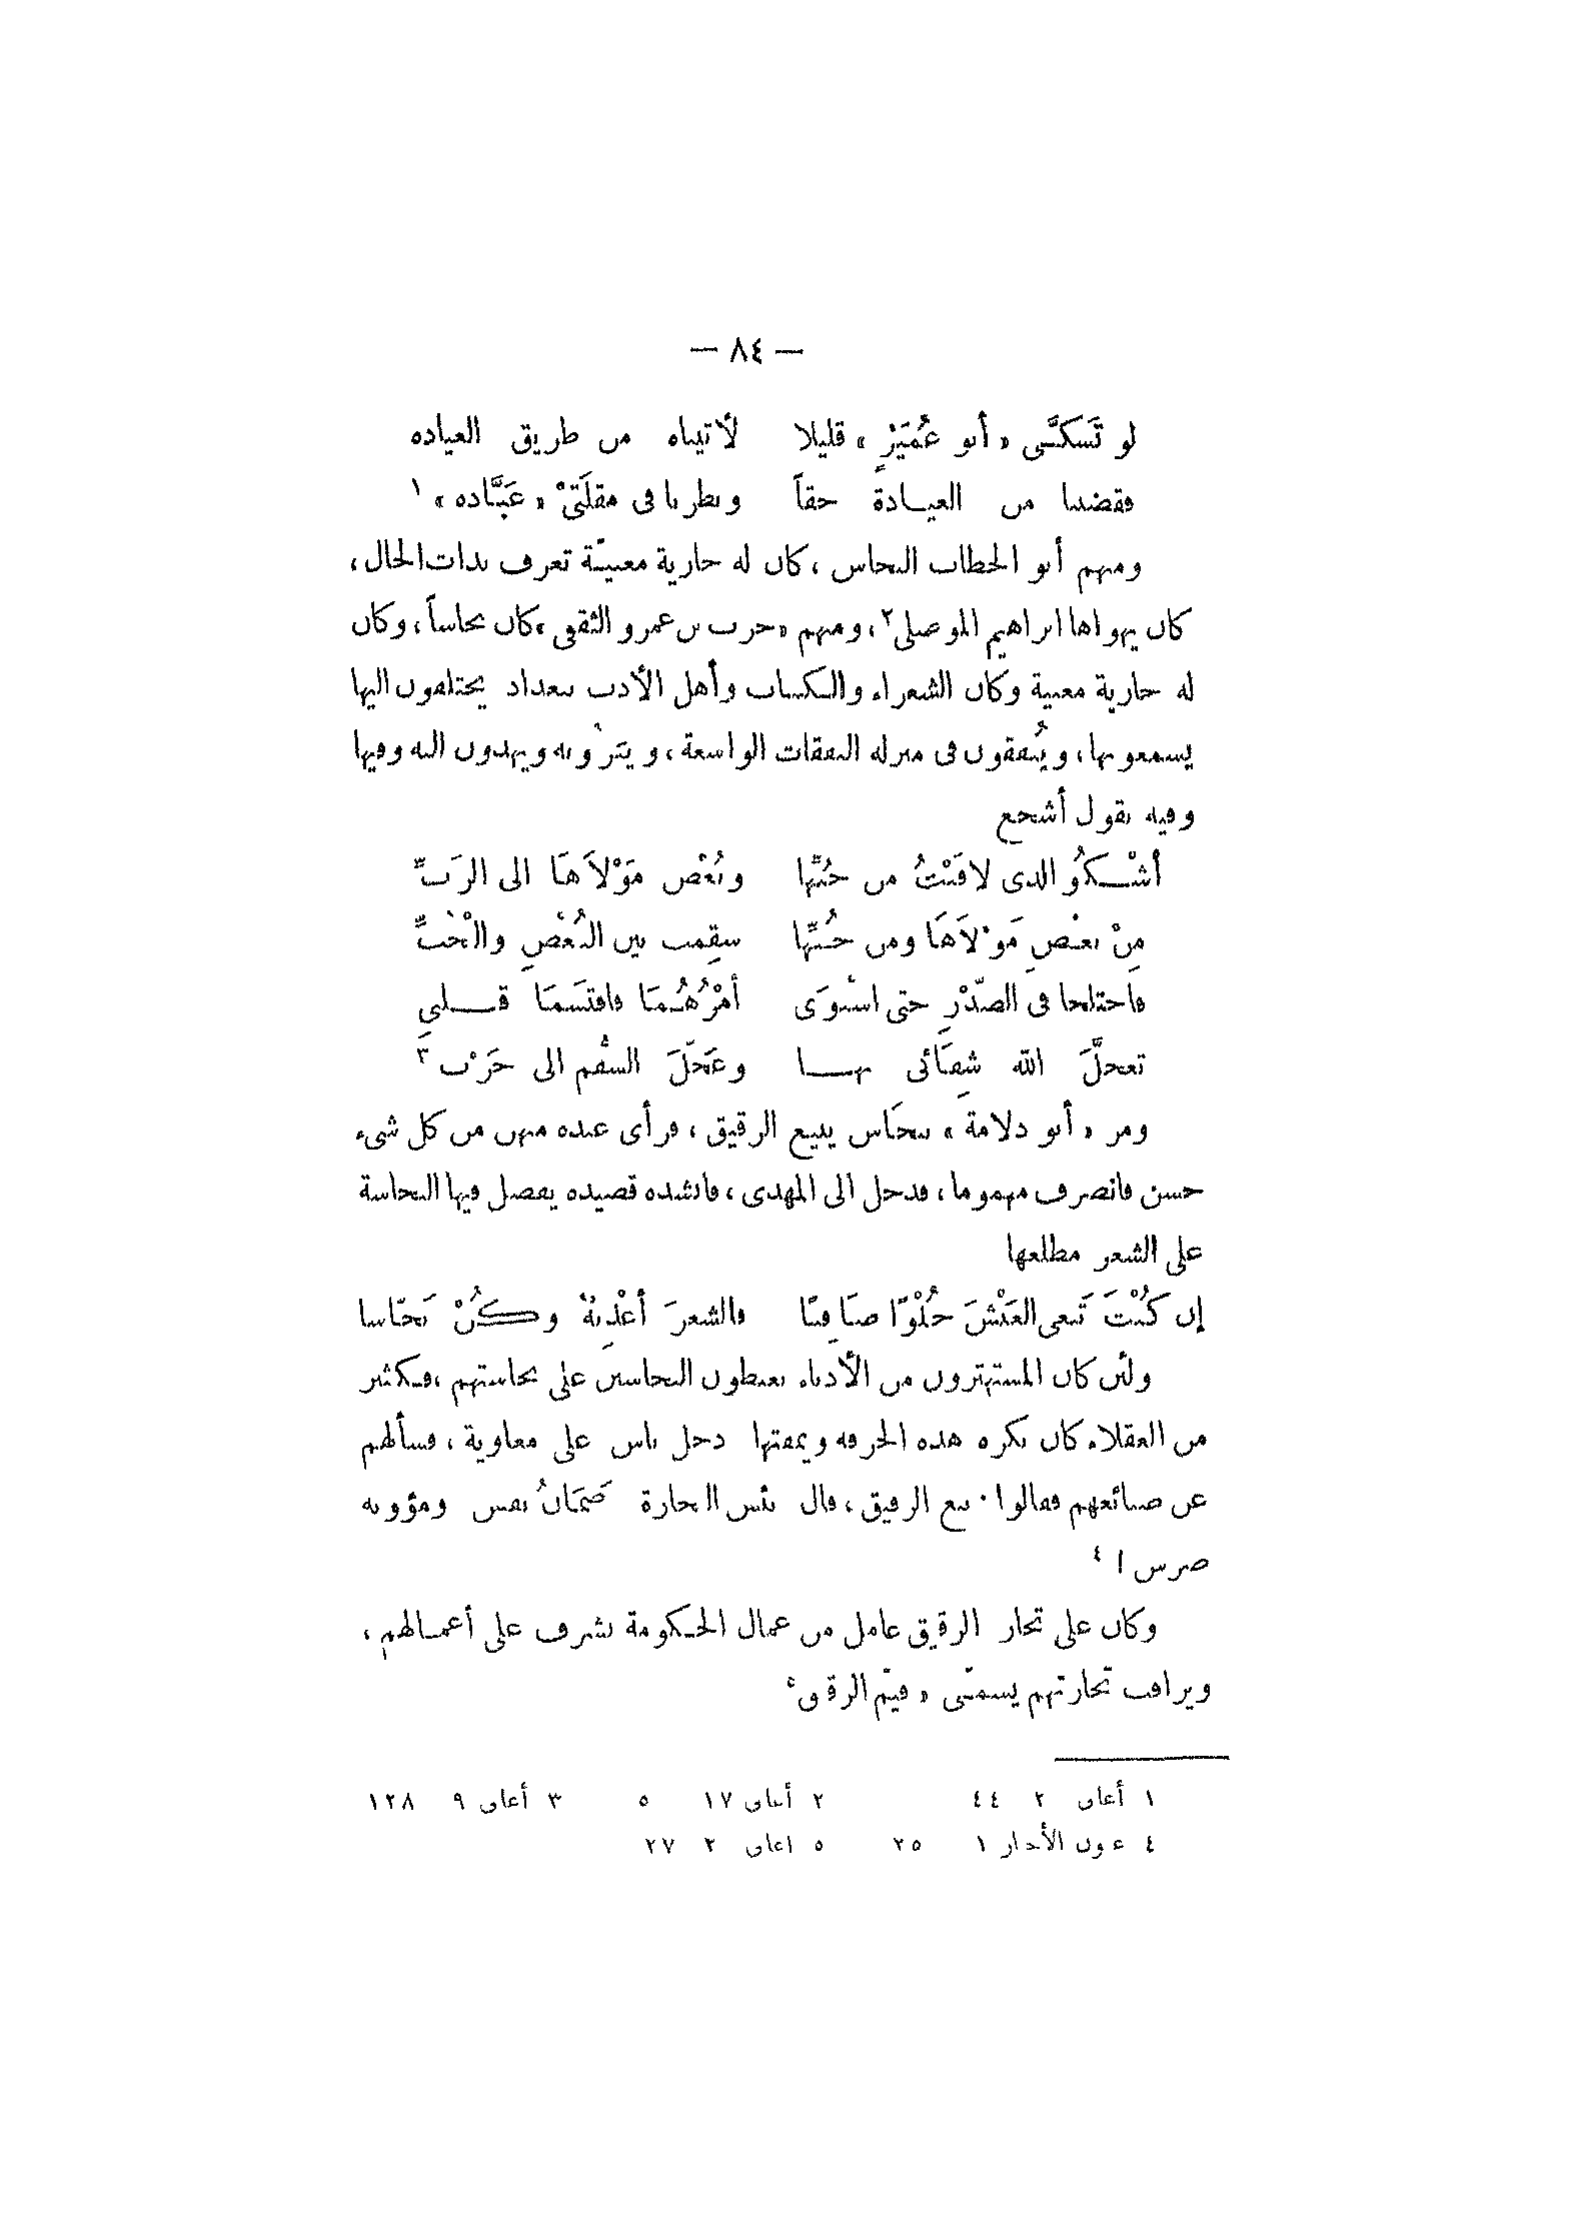 — ٨٤ —
لو تَشكَّى « أبو عُمَيْرٍ » قليلا لأتيناه من طريق العياده
فقضينا من العيـادةِ حقاً ونظرنا فى مقلَتَىْ « عَبَّاده » ١
ومنهم أبو الخطاب النخاس ، كان له جارية مغنيّة تعرف بذات الخال ،
كان يهواها ابراهيم الموصلى ٢ ، ومنهم « حرب بن عمرو الثقفى » كان نخاساً ، وكان
له جارية مغنية وكان الشعراء والكتاب وأهل الأدب ببغداد يختلفون اليها
يسمعونها ، ويُنفقون فى منزله النفقات الواسعة ، ويَبَرُّونه ويهدون اليه وفيها
وفيه يقول أشجع
أشْـكُو الذى لاقَيْتُ من حُبِّها وبُغْض مَوْلاَهَا الى الرَبِّ
مِنْ بغضِ مَوْلاَهَا ومن حُبِّها سقِمت بين البُغْضِ والْحُبِّ
فاختلجا فى الصّدْرِ حتى استْوَى أمْرُهُـمَا فاقتَسَمَا قـلبى
تعجلَّ الله شِفَائى بهـا وعَجَّلَ السقْم الى حَرْب ٣
ومر « أبو دلامة » بنخَّاس يبيع الرقيق ، فرأى عنده منهن من كل شىء
حسن فانصرف مهموما ، فدخل الى المهدى ، فانشده قصيده يفضل فيها النخاسة
على الشعر مطلعها
إن كُنْتَ تَبغى العَيْشَ حُلْوًا صَافيًا فالشعرَ أعْذِبْهُ وكُنْ نَخّاسا
ولئن كان المستهترون من الأدباء يغبطون النخاسين على نخاستهم ، فكثير
من العقلاء كان يكره هذه الحرفه ويمقتها دخل ناس على معاوية ، فسألهم
عن صنائعهم فقالوا · بيع الرقيق ، قال بئس التجارة ضَمَانُ نفس ومؤونه
ضرس ! ٤
وكان على تجار الرقيق عامل من عمال الحـكومة يشرف على أعمـالهم ،
ويراقب تجارتهم يسمّى « قيّم الرقيق ٥
١ أغانى ٢ ٤٤ ٢ أغانى ١٧ ٥ ٣ أغانى ٩ ١٢٨
٤ عيون الأخبار ١ ٢٥ ٥ اغانى ٢ ٢٧